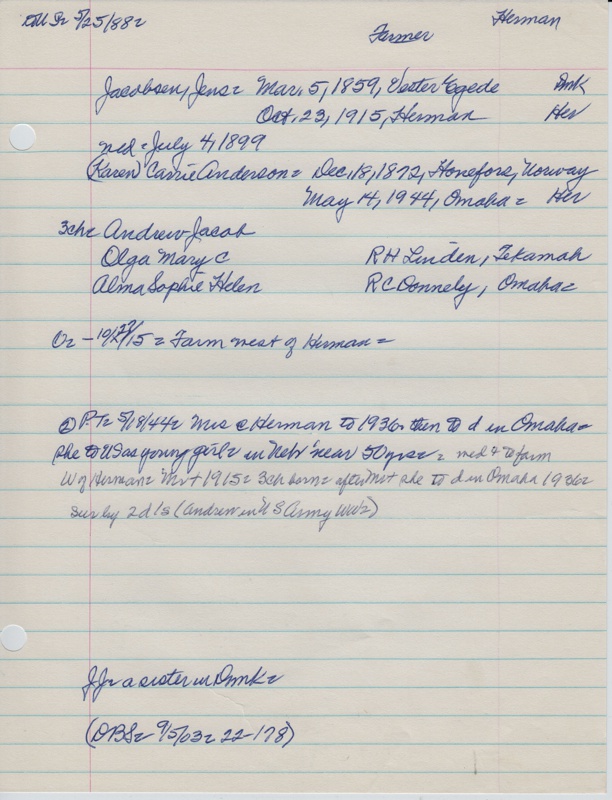 5/25/88=
Herman
Farmer
Jacobsen, Jens= Mar. 5, 1859, Vester Egede Dmk
Oct. 23, 1915, Herman Her
med= July 4, 1899
(Karen) Carrie Anderson= Dec, 18, 1872, Honefors, Norway
May 14, 1944, Omaha= Her
3ch= Andrew Jacob
Olga Mary C R H Linden, Tekamah
Alma Sophie Helen R C Donnely, Omaha=
O= -10/27/15= Farm west of Herman=
② P.T= 5/18/44= Mrs @ Herman to 1936- then to d in Omaha=
she to US as young girl= in Nebr near 50 yrs= med & to farm
W of Herman= Mr + 1915= 3ch born= after Mr + she to d in Omaha 1936=
sur by 2d 1s (Andrew in US Army WW2)
JJ= a sister in Dmk=
(DBS= 9/5/03= 22-178)